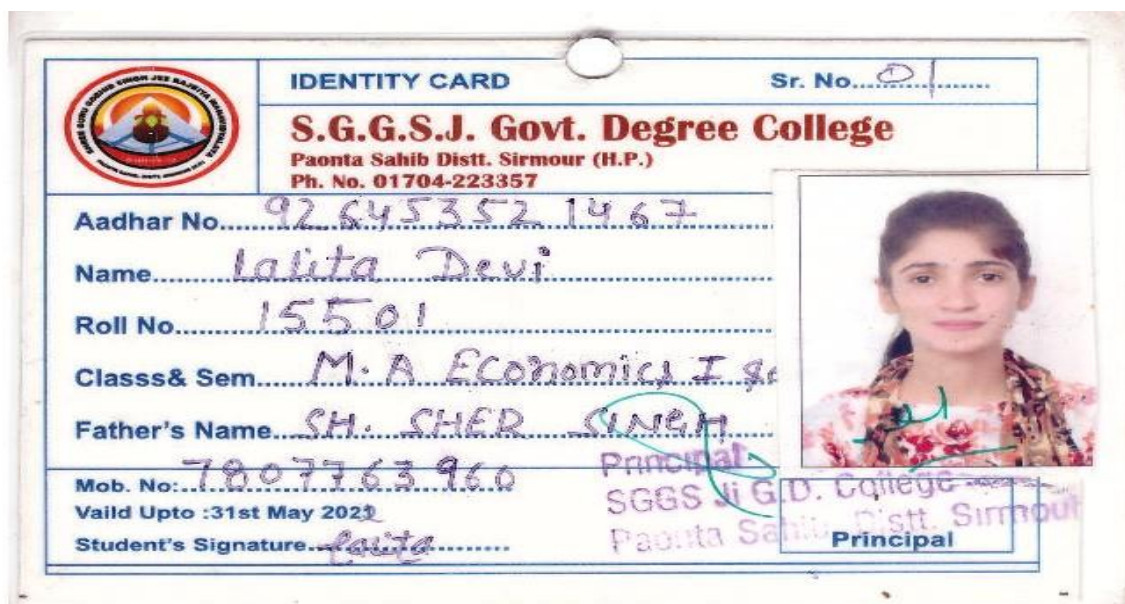 IDENTITY CARD Sr. No. 01
S.G.G.S.J. Govt. Degree College
Paonta Sahib Distt. Sirmour (H.P.)
Ph. No. 01704-223357
Aadhar No. 926453521467
Name Lalita Devi
Roll No. 15501
Classs& Sem. M.A Economics I
Father's Name SH. SHER SINGH
Mob. No: 7807763960
Vaild Upto :31st May 2022
Student's Signature Lalita
Principal
SGGS Ji G.D. College
Paonta Sahib, Distt. Sirmour
Principal